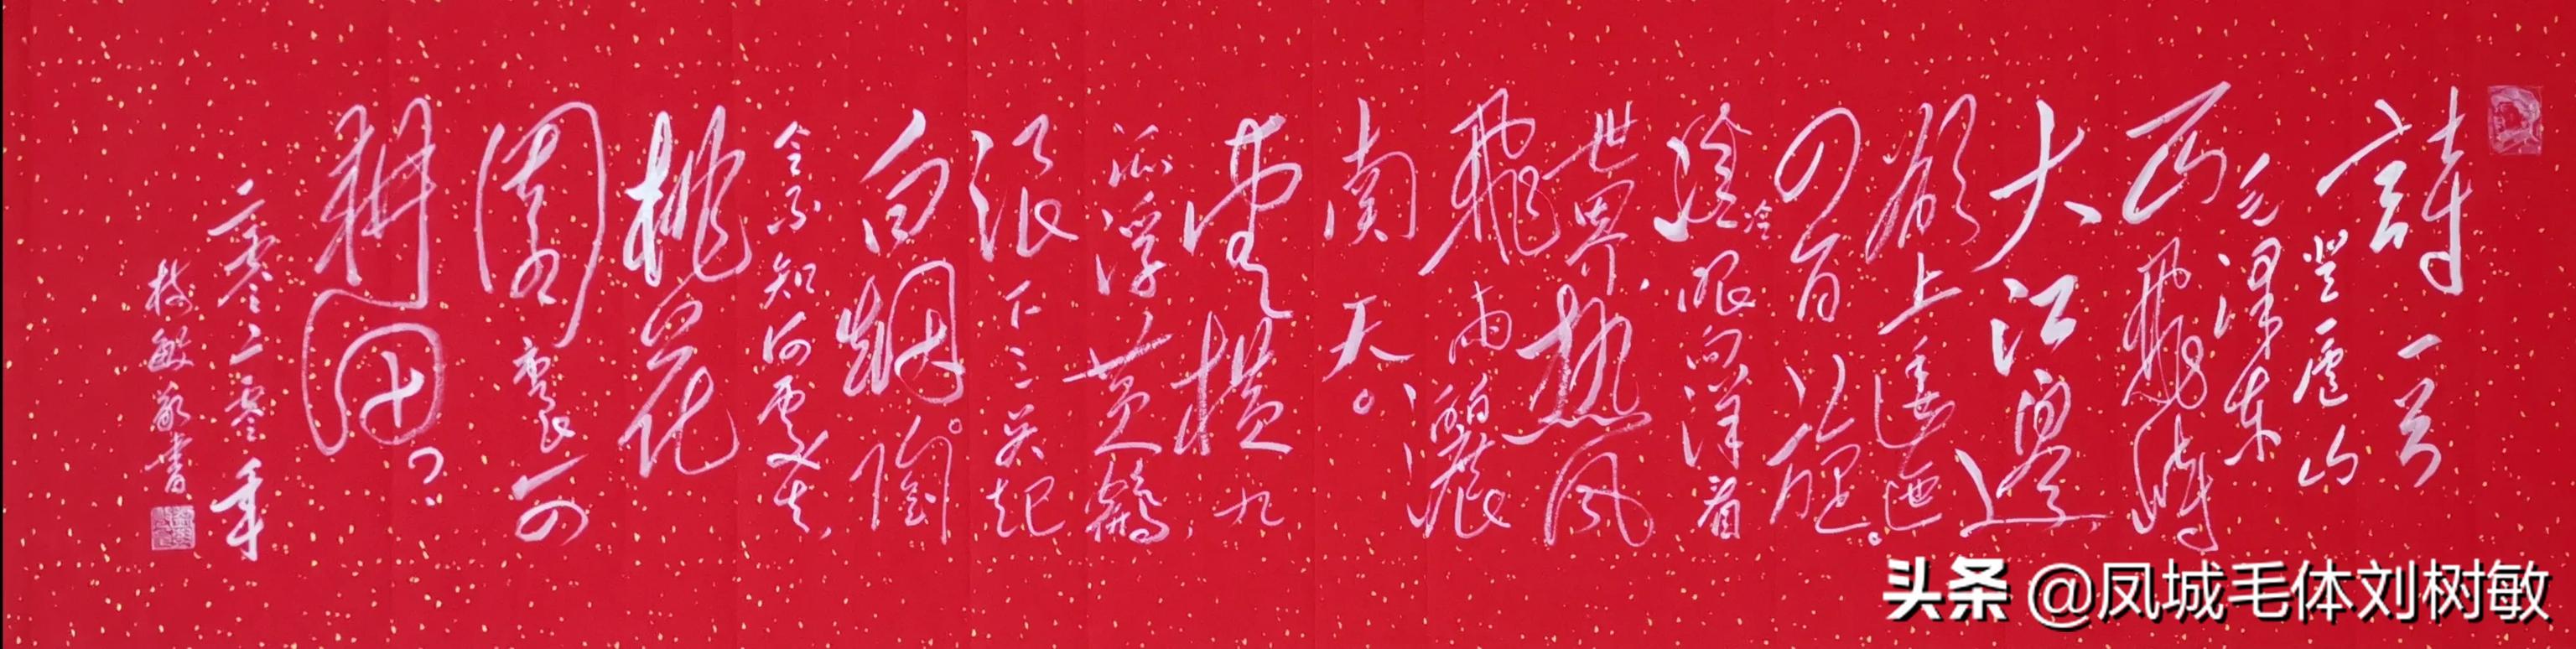 詩一首
登廬山
毛澤東
一山飛峙
大江邊
欲上逶迤
四百旋。
冷眼向洋看
世界,熱風
飛雨灑
南天。
雲橫九
派浮黃鶴,
浪下三吳起
白烟。陶
令不知何處去,
桃花
園裏可
耕田?
二零二零年
樹敏敬書
头条 @凤城毛体刘树敏